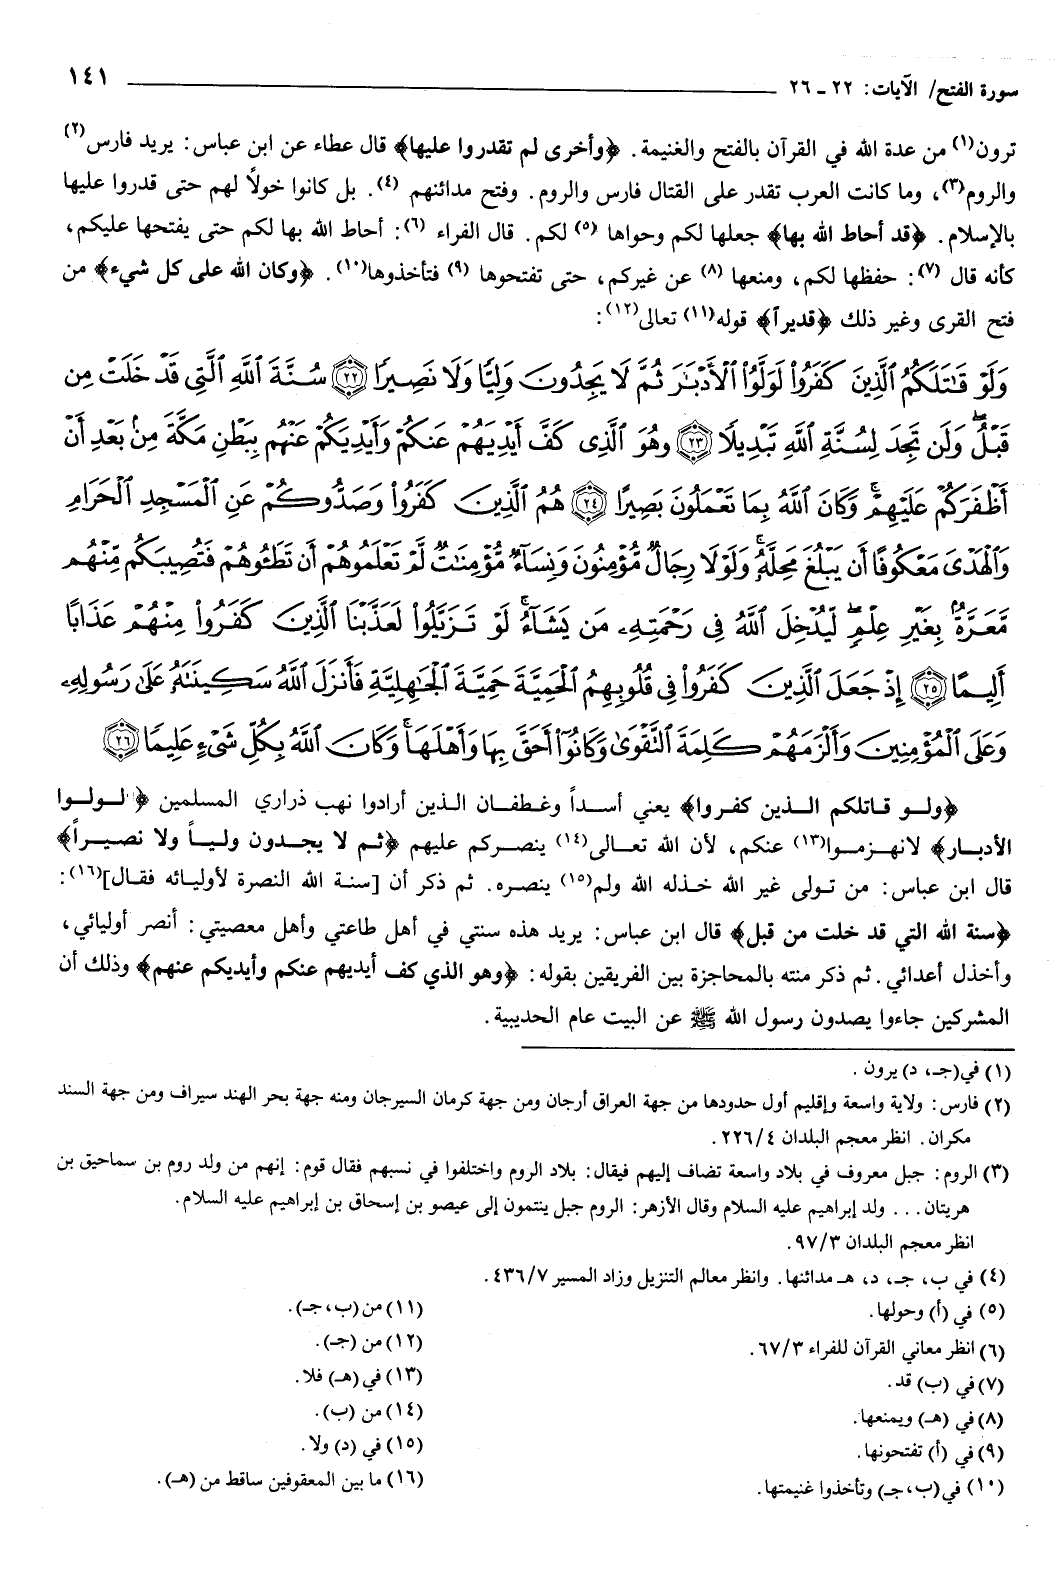 سورة الفتح/ الآيات: ٢٢ - ٢٦
١٤١
ترون(١) من عدة الله في القرآن بالفتح والغنيمة. ﴿وأخرى لم تقدروا عليها﴾ قال عطاء عن ابن عباس: يريد فارس(٢)
والروم(٣)، وما كانت العرب تقدر على القتال فارس والروم. وفتح مدائنهم (٤). بل كانوا خولاً لهم حتى قدروا عليها
بالإسلام. ﴿قد أحاط الله بها﴾ جعلها لكم وحواها (٥) لكم. قال الفراء (٦): أحاط الله بها لكم حتى يفتحها عليكم،
كأنه قال (٧): حفظها لكم، ومنعها (٨) عن غيركم، حتى تفتحوها (٩) فتأخذوها(١٠). ﴿وكان الله على كل شيء﴾ من
فتح القرى وغير ذلك ﴿قديراً﴾ قوله(١١) تعالى(١٢):
وَلَوْ قَٰتَلَكُمُ ٱلَّذِينَ كَفَرُوا۟ لَوَلَّوُا۟ ٱلْأَدْبَٰرَ ثُمَّ لَا يَجِدُونَ وَلِيًّا وَلَا نَصِيرًا ۝٢٢ سُنَّةَ ٱللَّهِ ٱلَّتِى قَدْ خَلَتْ مِن
قَبْلُ ۖ وَلَن تَجِدَ لِسُنَّةِ ٱللَّهِ تَبْدِيلًا ۝٢٣ وَهُوَ ٱلَّذِى كَفَّ أَيْدِيَهُمْ عَنكُمْ وَأَيْدِيَكُمْ عَنْهُم بِبَطْنِ مَكَّةَ مِنۢ بَعْدِ أَنْ
أَظْفَرَكُمْ عَلَيْهِمْ ۚ وَكَانَ ٱللَّهُ بِمَا تَعْمَلُونَ بَصِيرًا ۝٢٤ هُمُ ٱلَّذِينَ كَفَرُوا۟ وَصَدُّوكُمْ عَنِ ٱلْمَسْجِدِ ٱلْحَرَامِ
وَٱلْهَدْىَ مَعْكُوفًا أَن يَبْلُغَ مَحِلَّهُۥ ۚ وَلَوْلَا رِجَالٌ مُّؤْمِنُونَ وَنِسَآءٌ مُّؤْمِنَٰتٌ لَّمْ تَعْلَمُوهُمْ أَن تَطَـُٔوهُمْ فَتُصِيبَكُم مِّنْهُم
مَّعَرَّةٌۢ بِغَيْرِ عِلْمٍ ۖ لِّيُدْخِلَ ٱللَّهُ فِى رَحْمَتِهِۦ مَن يَشَآءُ ۚ لَوْ تَزَيَّلُوا۟ لَعَذَّبْنَا ٱلَّذِينَ كَفَرُوا۟ مِنْهُمْ عَذَابًا
أَلِيمًا ۝٢٥ إِذْ جَعَلَ ٱلَّذِينَ كَفَرُوا۟ فِى قُلُوبِهِمُ ٱلْحَمِيَّةَ حَمِيَّةَ ٱلْجَٰهِلِيَّةِ فَأَنزَلَ ٱللَّهُ سَكِينَتَهُۥ عَلَىٰ رَسُولِهِۦ
وَعَلَى ٱلْمُؤْمِنِينَ وَأَلْزَمَهُمْ كَلِمَةَ ٱلتَّقْوَىٰ وَكَانُوٓا۟ أَحَقَّ بِهَا وَأَهْلَهَا ۚ وَكَانَ ٱللَّهُ بِكُلِّ شَىْءٍ عَلِيمًا ۝٢٦
﴿ولو قاتلكم الذين كفروا﴾ يعني أسداً وغطفان الذين أرادوا نهب ذراري المسلمين ﴿لولوا
الأدبار﴾ لانهزموا(١٣) عنكم، لأن الله تعالى(١٤) ينصركم عليهم ﴿ثم لا يجدون ولياً ولا نصيراً﴾
قال ابن عباس: من تولى غير الله خذله الله ولم(١٥) ينصره. ثم ذكر أن [سنة الله النصرة لأوليائه فقال](١٦):
﴿سنة الله التي قد خلت من قبل﴾ قال ابن عباس: يريد هذه سنتي في أهل طاعتي وأهل معصيتي: أنصر أوليائي،
وأخذل أعدائي. ثم ذكر منته بالمحاجزة بين الفريقين بقوله: ﴿وهو الذي كف أيديهم عنكم وأيديكم عنهم﴾ وذلك أن
المشركين جاءوا يصدون رسول الله ﷺ عن البيت عام الحديبية.
(١) في(جـ، د) يرون.
(٢) فارس: ولاية واسعة وإقليم أول حدودها من جهة العراق أرجان ومن جهة كرمان السيرجان ومنه جهة بحر الهند سيراف ومن جهة السند
مكران. انظر معجم البلدان ٢٢٦/٤.
(٣) الروم: جبل معروف في بلاد واسعة تضاف إليهم فيقال: بلاد الروم واختلفوا في نسبهم فقال قوم: إنهم من ولد روم بن سماحيق بن
هريتان... ولد إبراهيم عليه السلام وقال الأزهر: الروم جبل ينتمون إلى عيصو بن إسحاق بن إبراهيم عليه السلام.
انظر معجم البلدان ٩٧/٣.
(٤) في ب، جـ، د، هـ مدائنها. وانظر معالم التنزيل وزاد المسير ٤٣٦/٧.
(٥) في (أ) وحولها.
(٦) انظر معاني القرآن للفراء ٦٧/٣.
(٧) في (ب) قد.
(٨) في (هـ) ويمنعها.
(٩) في (أ) تفتحونها.
(١٠) في(ب، جـ) وتأخذوا غنيمتها.
(١١) من (ب، جـ).
(١٢) من (جـ).
(١٣) في (هـ) فلا.
(١٤) من (ب).
(١٥) في (د) ولا.
(١٦) ما بين المعقوفين ساقط من (هـ).